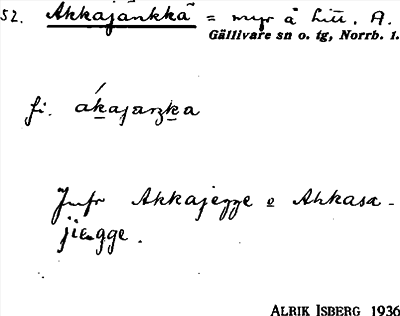 52. Akkajänkkä = myr å litt. A.
Gällivare sn o. tg, Norrb. l.
fi. ákajaŋka
Jmfr Akkajegge o Ahkasa-
jiegge.
ALRIK ISBERG 1936